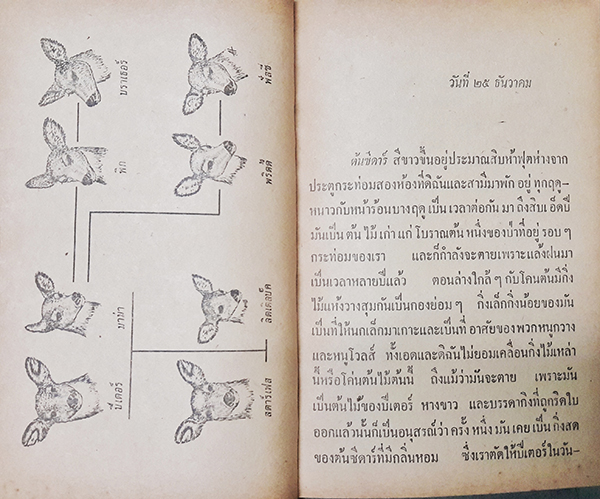 บราเธอร์
พิก
มาม่า
ปีเตอร์
พริตตี้
สตาร์เฟส
วันที่ ๒๕ ธันวาคม
ต้นซีดาร์ สีขาวขึ้นอยู่ประมาณสิบห้าฟุตห่างจาก
ประตูกระท่อมสองห้องที่ดิฉันและสามีมาพัก อยู่ ทุกฤดู–
หนาวกับหน้าร้อนบางฤดู เป็น เวลาต่อกัน มา ถึงสิบเอ็ดปี
มันเป็น ต้น ไม้ เก่า แก่ โบราณต้น หนึ่งของป่าที่อยู่ รอบ ๆ
กระท่อมของเรา และก็กำลังจะตายเพราะแล้งฝนมา
เป็นเวลาหลายปีแล้ว ตอนล่างใกล้ ๆ กับโคนต้นมีกิ่ง
ไม้แห้งวางสุมกันเป็นกองย่อม ๆ กิ่งเล็กกิ่งน้อยของมัน
เป็นที่ให้นกเล็กมาเกาะและเป็นที่ อาศัยของพวกหนูกวาง
และหนูโวลส์ ทั้งเอดและดิฉันไม่ยอมเคลื่อนกิ่งไม้เหล่า
นี้หรือโค่นต้นไม้ต้นนี้ ถึงแม้ว่ามันจะตาย เพราะมัน
เป็นต้นไม้ของปีเตอร์ หางขาว และบรรดากิ่งที่ถูกริดใบ
ออกแล้วนั้นก็เป็นอนุสรณ์ว่า ครั้ง หนึ่ง มัน เคย เป็น กิ่งสด
ของต้นซีดาร์ที่มีกลิ่นหอม ซึ่งเราตัดให้ปีเตอร์ในวัน–